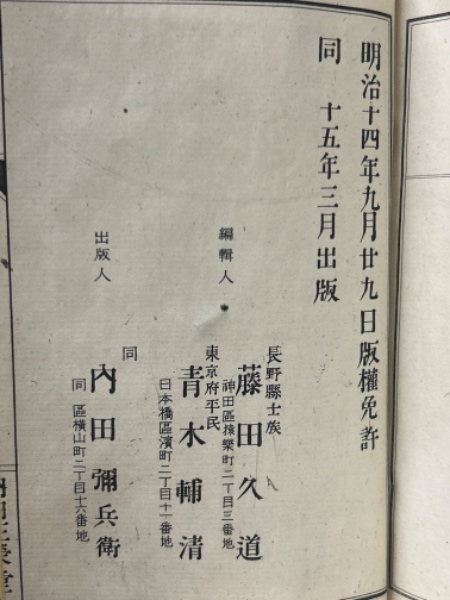 明治十四年九月廿九日版權免許
同 十五年三月出版
編輯人
長野縣士族
藤田久道
神田區猿樂町二丁目三番地
東京府平民
青木輔清
日本橋區濱町二丁目十一番地
出版人
同
內田彌兵衛
同 區橫山町二丁目十六番地